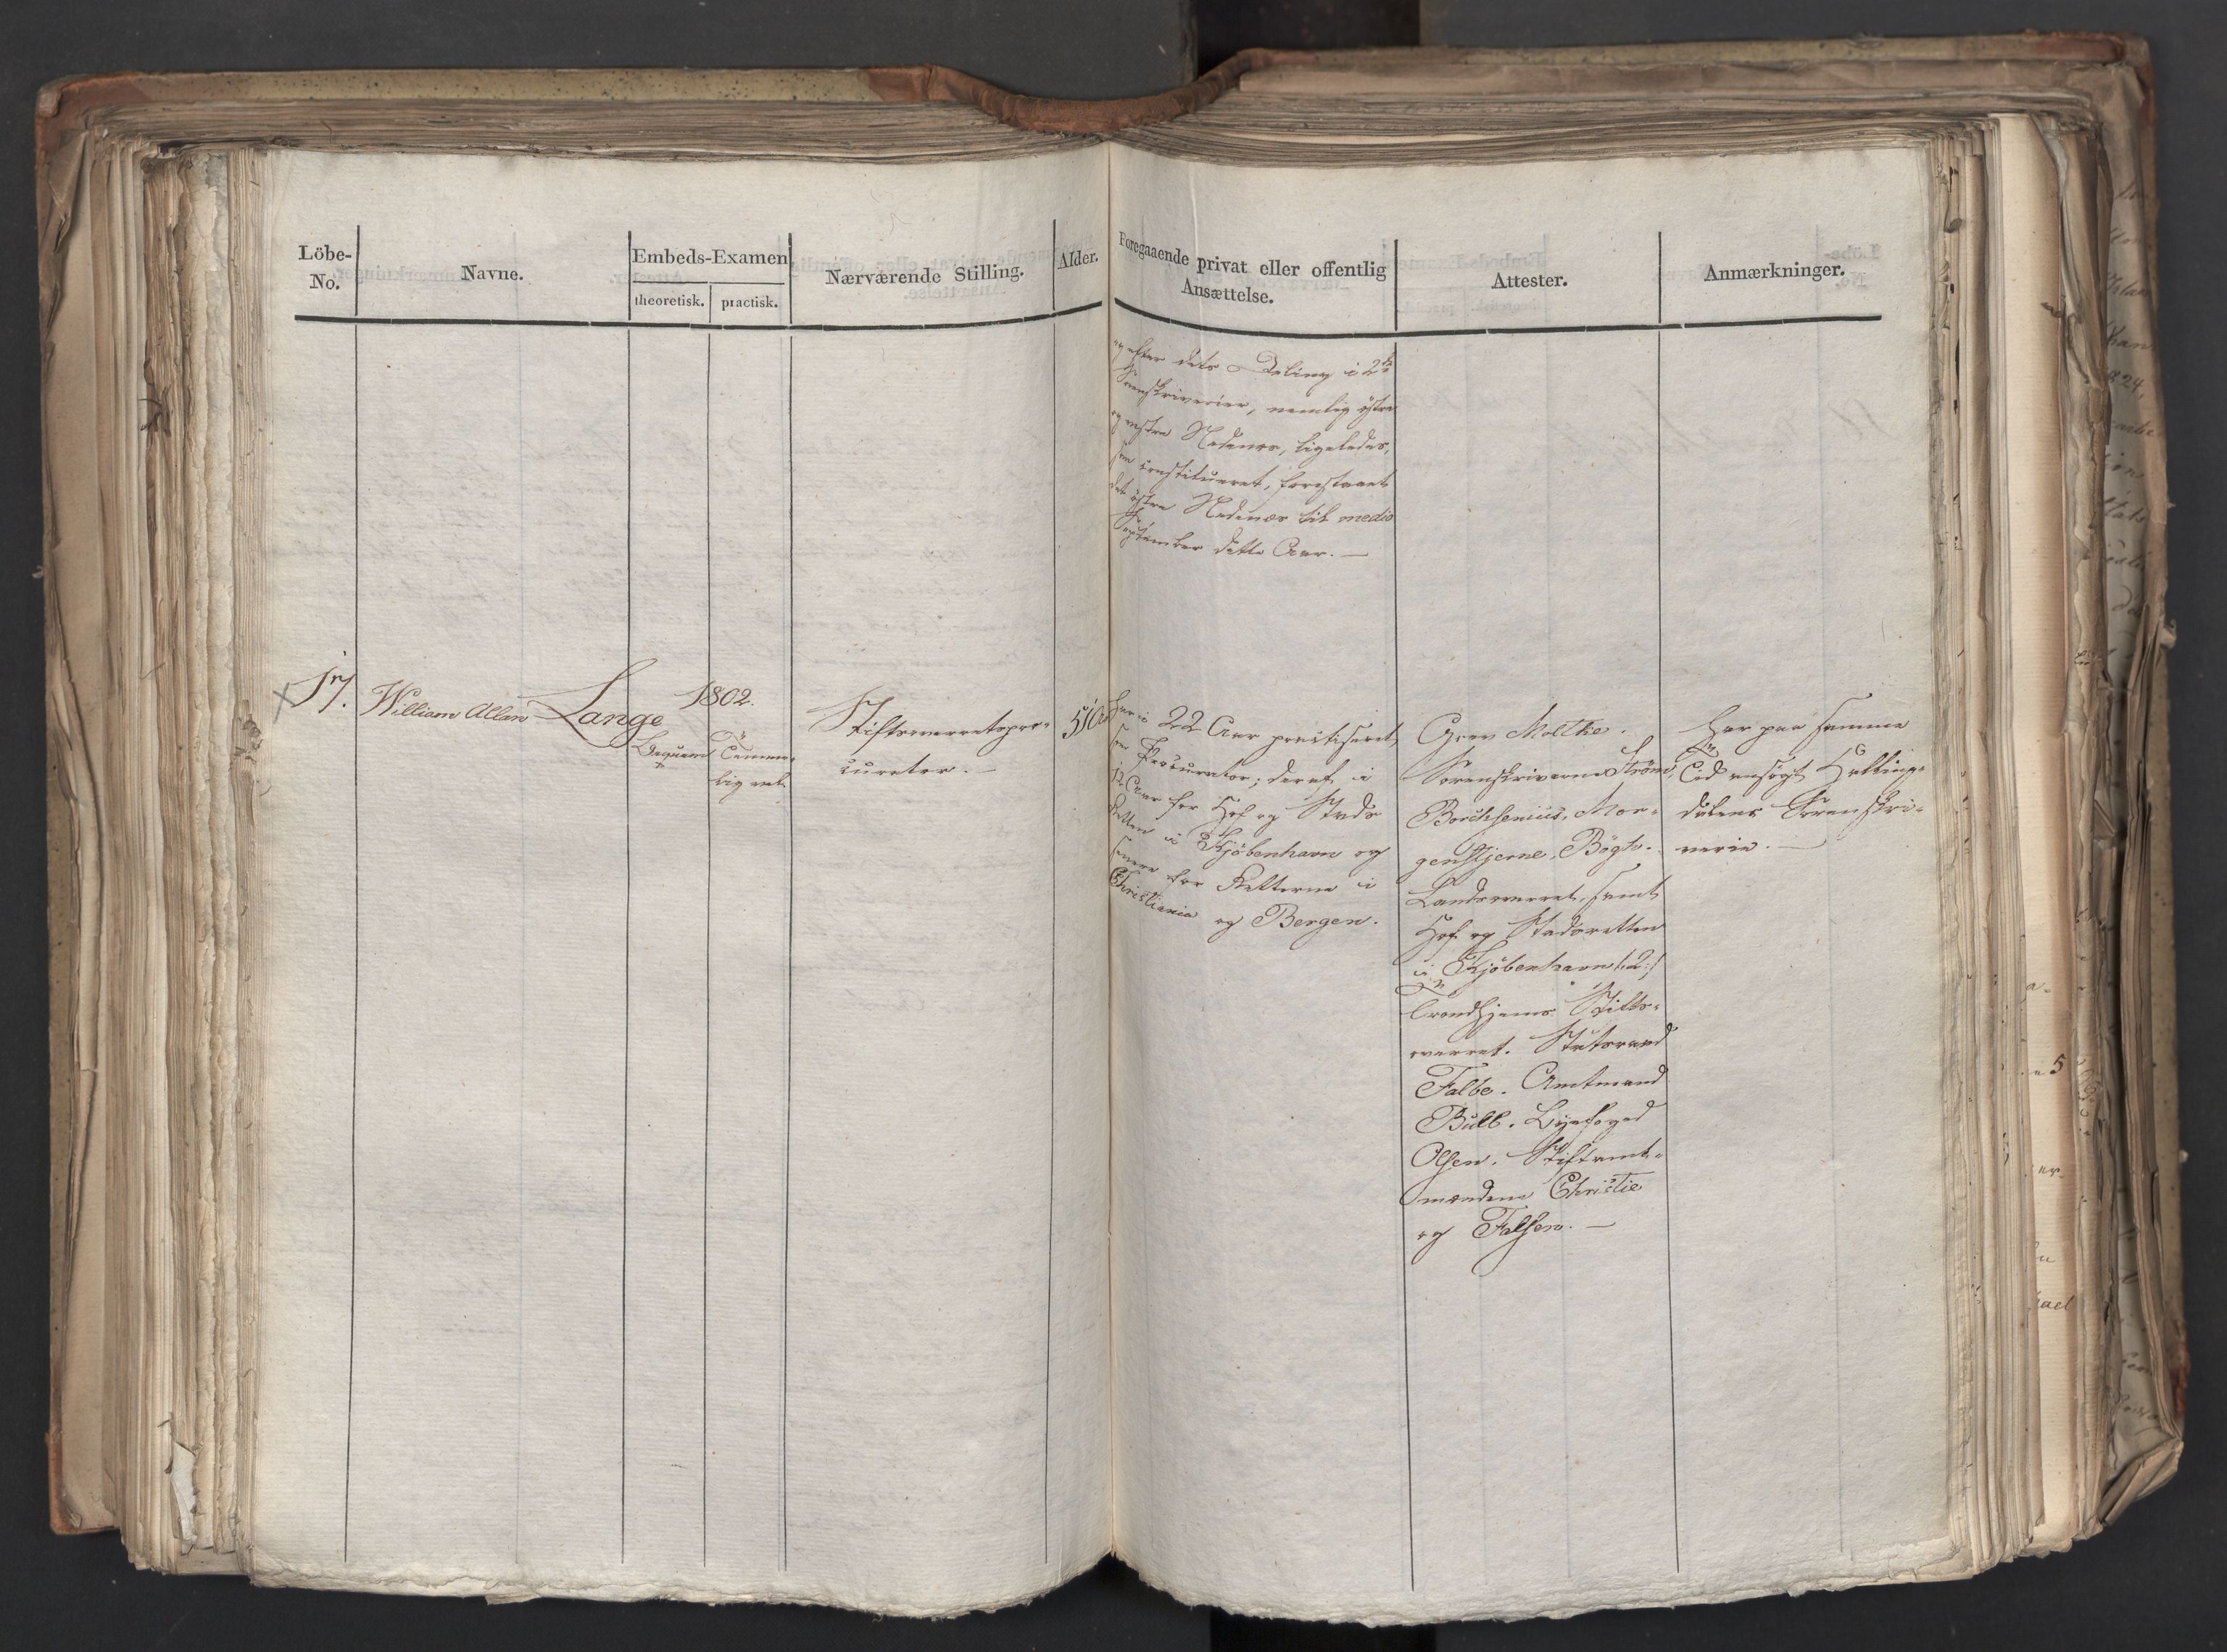 Löbe-
No.
Navne.
Embeds-Examen
theoretisk. practisk.
Nærværende Stilling.
Alder.
Foregaaende privat eller offentlig
Ansættelse.
Attester.
Anmærkninger.
og efter dets Deling i 2de
Sorenskriverier, nemlig östre
og vestre Nedenæs, ligeledes,
som constitueret, forestaaet
det östre Nedenæs til medio
September dette Aar. —
17.
William Allan Lange
1802.
Bequem
Temme-
lig vel
Stiftsoverretspro-
curator. —
51 Aar
har i 22 Aar practiseret
som Procurator; deraf i
12 Aar for Hof og Stads
Retten i Kjöbenhavn og
senere for Retterne i
Christiania og Bergen.
Grev Moltke.
Sorenskriverne Ström,
Borchsenius, Mor-
genstjerne, Bögh.
Landsoverret, samt
Hof og Stadsretten
i Kjöbenhavn /:2:/
Trondhjems Stifts-
overret. Statsraad
Falbe. Amtmand
Bull. Byefoged
Olsen. Stiftamt-
mændene Christie
og Falsen. —
Har paa samme
Tid ansögt Halling-
dalens Sorenskri-
verie. —